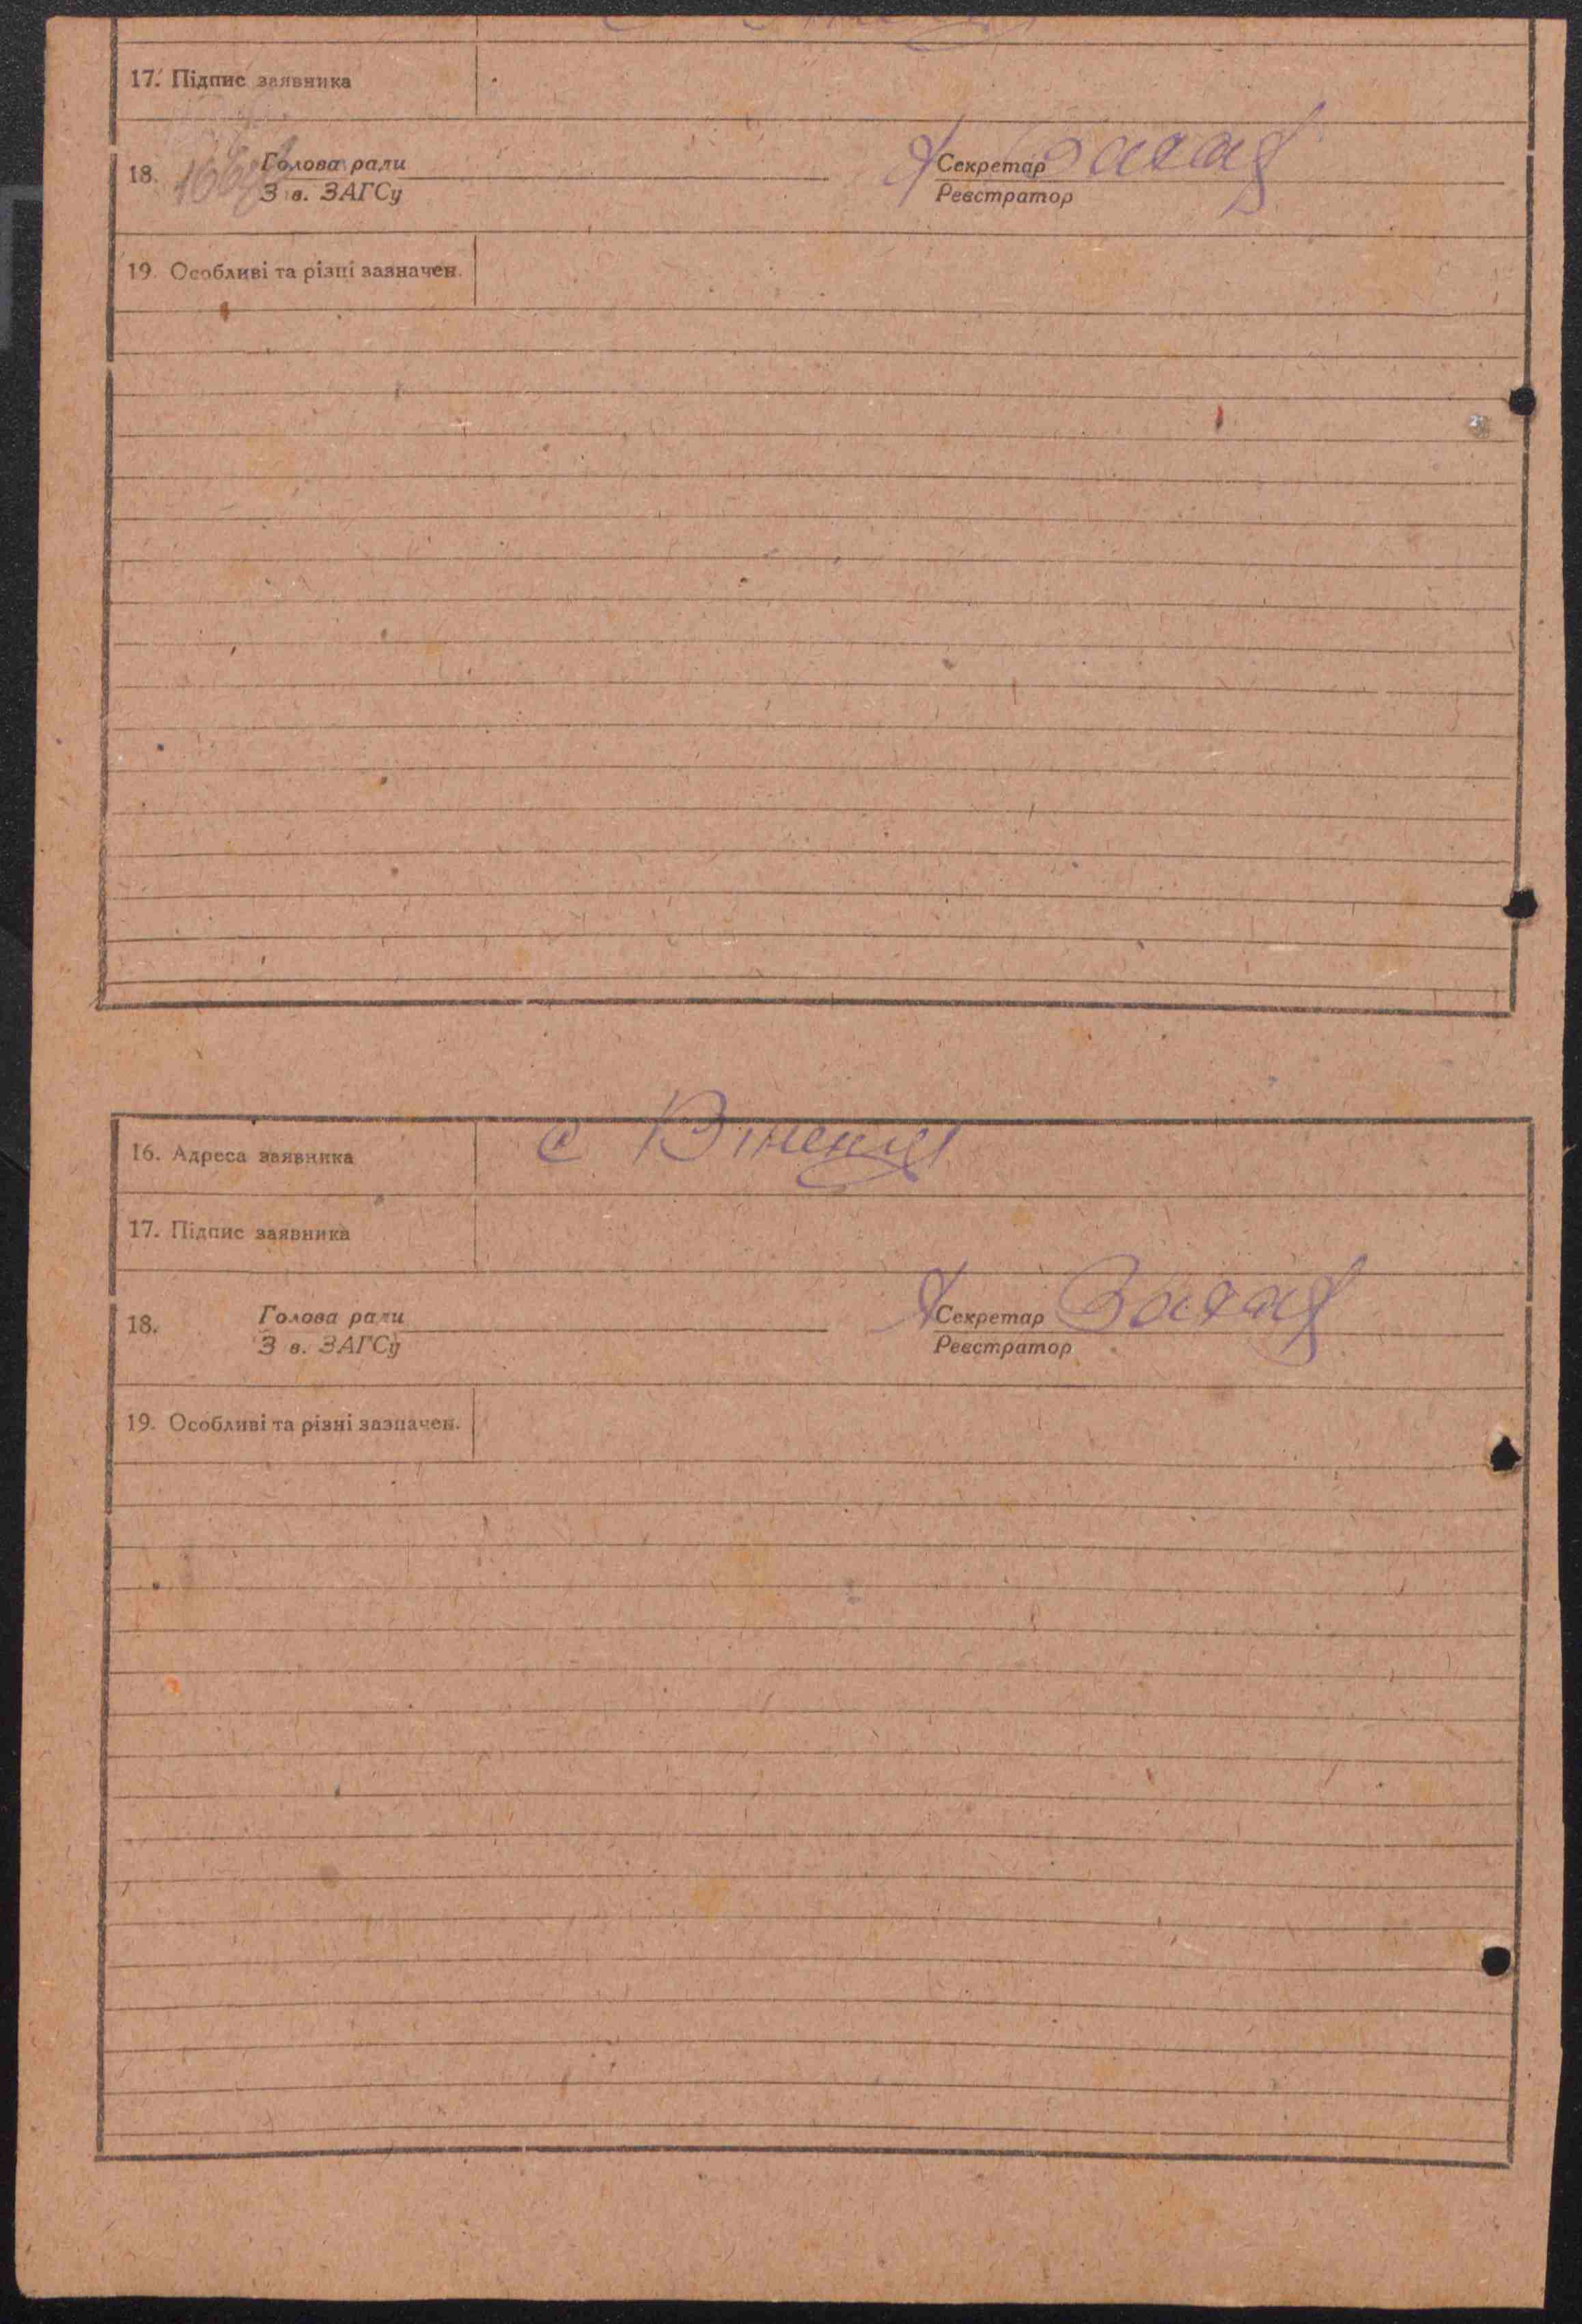 17. Підпис заявника
18. Голова ради Секретар
З в. ЗАГСу Реєстратор
19. Особливі та різні зазначен.
16. Адреса заявника с
17. Підпис заявника
18. Голова ради Секретар
З в. ЗАГСу Реєстратор
19. Особливі та різні зазначен.